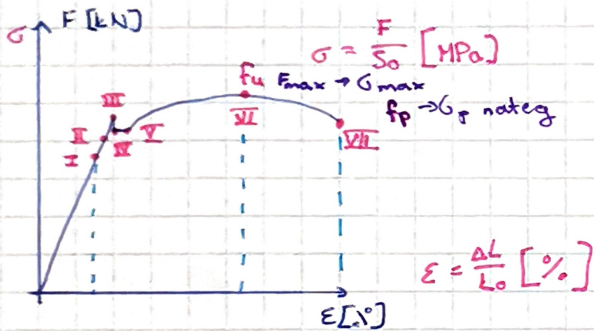 σ F [kN]
σ = F/S₀ [MPa]
fu Fmax → σmax
fp → σp nateg
III
II
I
IV
V
VI
VII
ε = ΔL/L₀ [%]